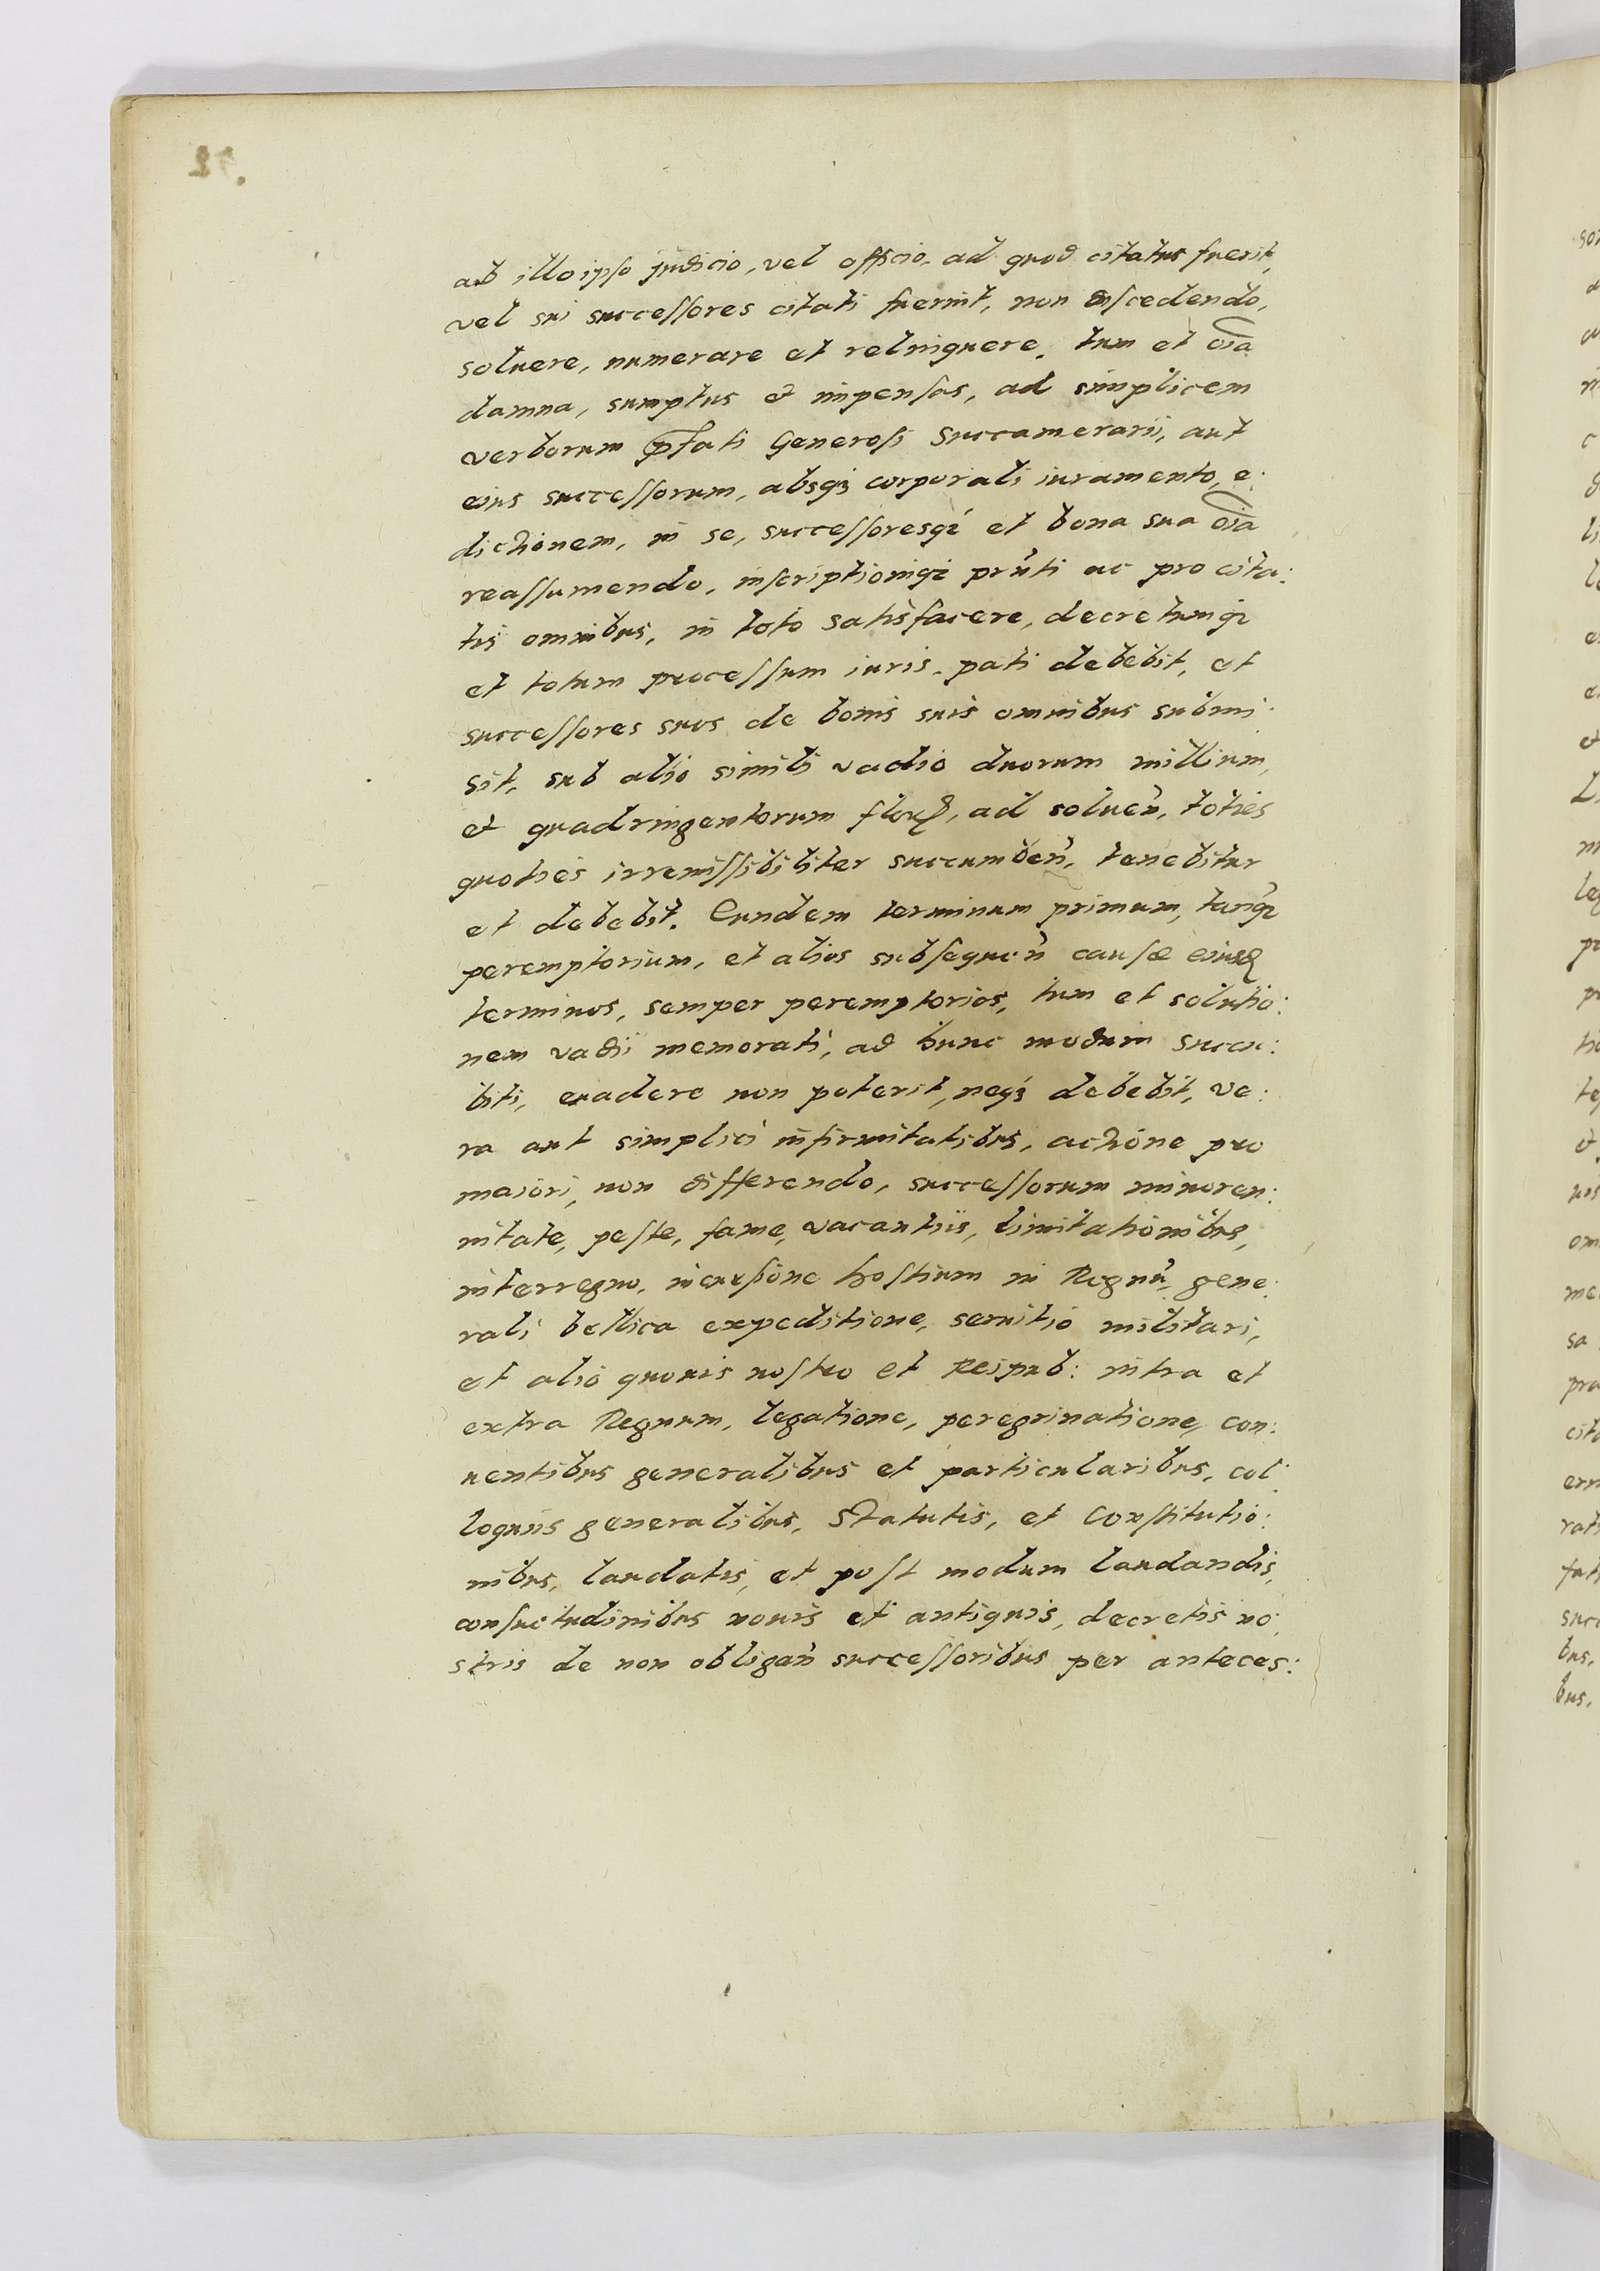 ab illo ipso judicio, vel officio, ad quod citatus fuerit,
vel sui successores citati fuerint, non discedendo,
soluere, numerare et relinquere. tum et oïa
damna, sumptus et impensas, ad simplicem
verborum p̃fati Generosi Succamerarii, aut
eius successorum, absq3 corporali iuramento, e:
dictionem, in se, successoresq3 et bona sua oïa
reassumendo, inscriptioniq3 prñti ac pro cita:
tis omnibus, in toto satisfacere, decretumq3
et totum processum iuris, pati debebit, et
successores suos de bonis suis omnibus submi:
sit, sub alio simili vadio duorum millium,
et quadringentorum floꝝ, ad soluen̄, toties
quoties irremissibiliter succumben̄, tenebitur
et debebit. Eundem terminum primum, tanq3
peremptorium, et alios subsequen̄ causæ eiusd
terminos, semper peremptorios, tum et solutio:
nem vadii memorati, ad hunc modum succu:
biti, euadere non poterit, neq3 debebit, ve:
ra aut simplici infirmitatibus, actione pro
maiori, non differendo, successorum minoren:
nitate, peste, fame, vacantiis, limitationibus,
interregno, incursione hostium in Regnū, gene:
rali bellica expeditione, seruitio militari,
et alio quouis nostro et Reipub: intra et
extra Regnum, legatione, peregrinatione, con:
uentibus generalibus et particularibus, col:
loquiis generalibus, Statutis, et Constitutio:
nibus, laudatis, et post modum laudandis,
consuetudinibus nouis et antiquis, decretis no:
stris de non obligan̄ successoribus per anteces: